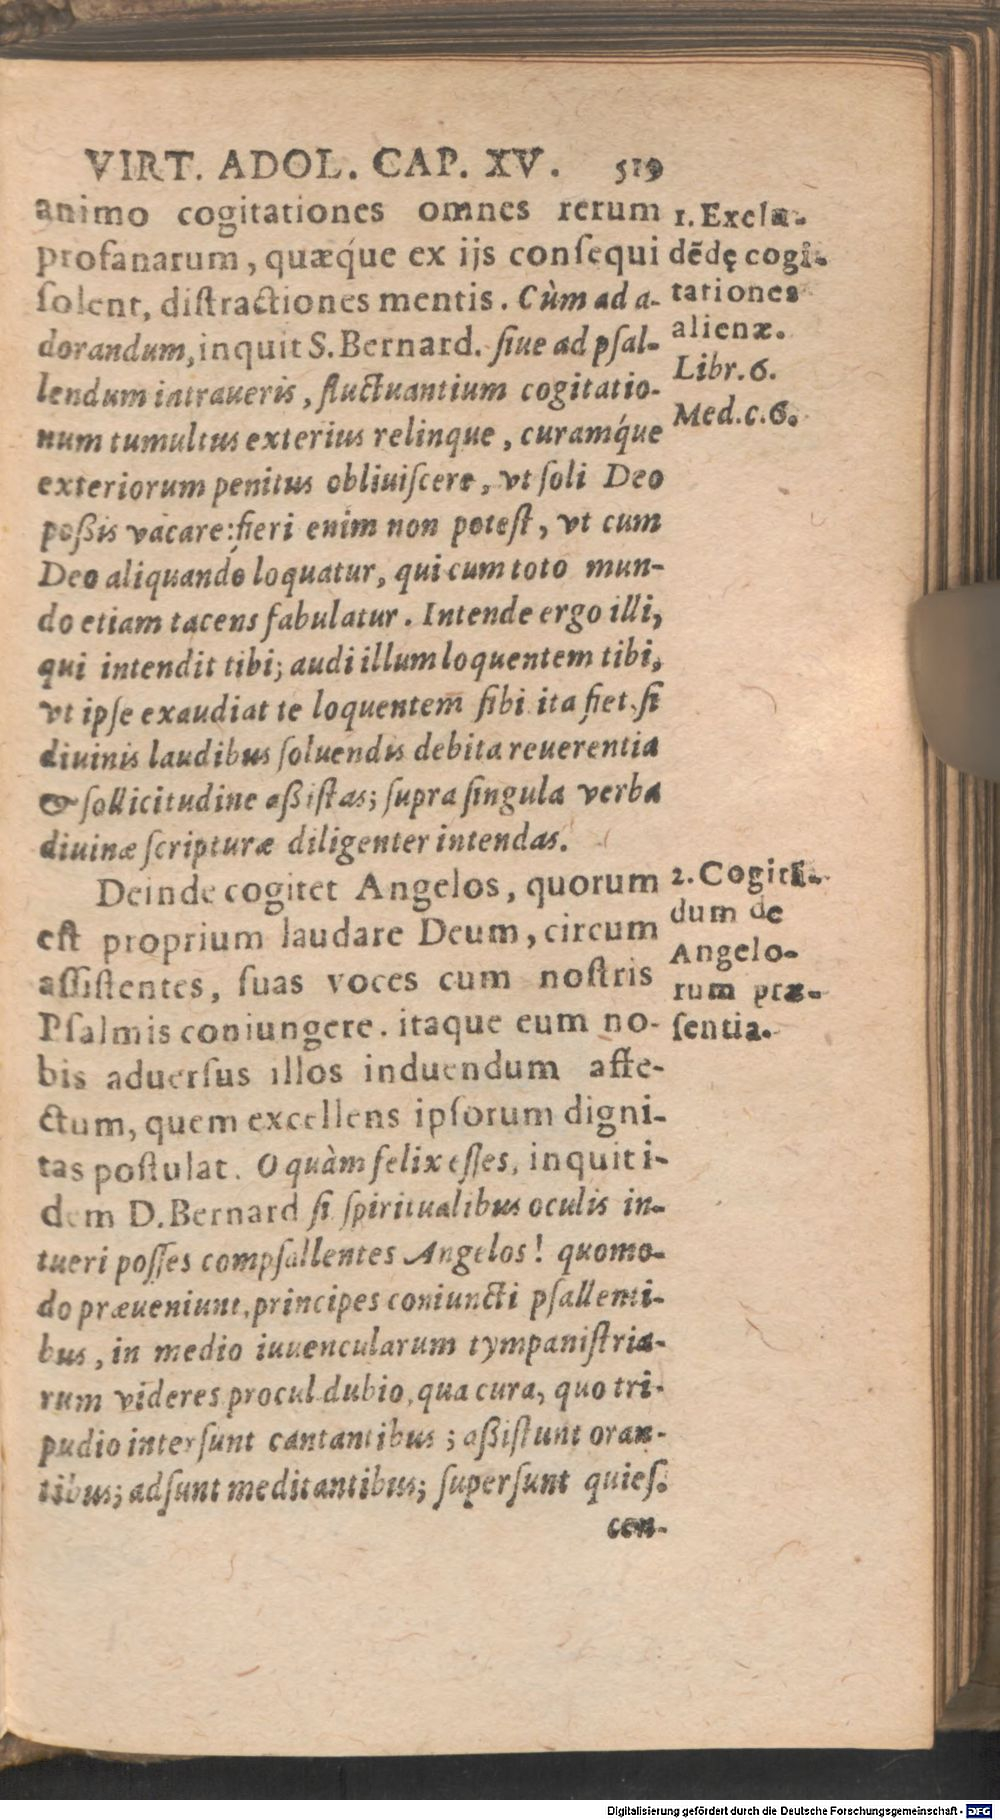 VIRT. ADOL. CAP. XV. 519
animo cogitationes omnes rerum
profanarum, quæq́ue ex ijs conſequi
ſolent, diſtractiones mentis. Cùm ad a-
dorandum, inquit S. Bernard. ſiue ad pſal-
lendum intraueris, fluctuantium cogitatio-
num tumultus exterius relinque, curamq́ue
exteriorum penitus obliuiſcere, vt ſoli Deo
poßis vacare: fieri enim non poteſt, vt cum
Deo aliquando loquatur, qui cum toto mun-
do etiam tacens fabulatur. Intende ergo illi,
qui intendit tibi; audi illum loquentem tibi,
vt ipſe exaudiat te loquentem ſibi. ita fiet, ſi
diuinis laudibus ſoluendis debita reuerentia
& ſollicitudine aßiſtas; ſupra ſingula verba
diuinæ ſcripturæ diligenter intendas.
Deinde cogitet Angelos, quorum
eſt proprium laudare Deum, circum
aſſiſtentes, ſuas voces cum noſtris
Pſalmis coniungere. itaque eum no-
bis aduerſus illos induendum affe-
ctum, quem excellens ipſorum digni-
tas poſtulat. O quàm felix eſſes, inquit i-
dem D. Bernard ſi ſpiritualibus oculis in-
tueri poſſes compſallentes Angelos! quomo-
do præueniunt, principes coniuncti pſallenti-
bus, in medio iuuencularum tympaniſtria-
rum videres procul dubio, qua cura, quo tri-
pudio interſunt cantantibus; aßiſtunt oran-
tibus; adſunt meditantibus; ſuperſunt quieſ-
cen-
1. Exclu-
dēdę cogi-
tationes
alienæ.
Libr. 6.
Med. c. 6.
2. Cogitã-
dum de
Angelo-
rum præ-
ſentia.
Digitalisierung gefördert durch die Deutsche Forschungsgemeinschaft - DFG